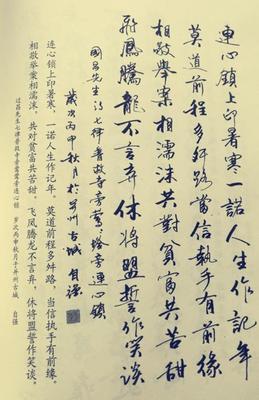 連心鎖上印暑寒一諾人生作記年
莫道前程多舛路當信執手有前緣
相敬舉案相濡沫共對貧富共苦甜
飛鳳騰龍不言弃休將盟誓作笑談
國昌先生詩七律普救寺旁鶯鶯塔旁連心鎖
歲次丙申秋月於并州古城 自强
连心锁上印暑寒，一诺人生作记年。莫道前程多舛路，当信执手有前缘。
相敬举案相濡沫，共对贫富共苦甜。飞凤腾龙不言弃，休将盟誓作笑谈。
过昌先生七律普救寺莺莺塔旁连心锁 岁次丙申秋月于并州古城 自强